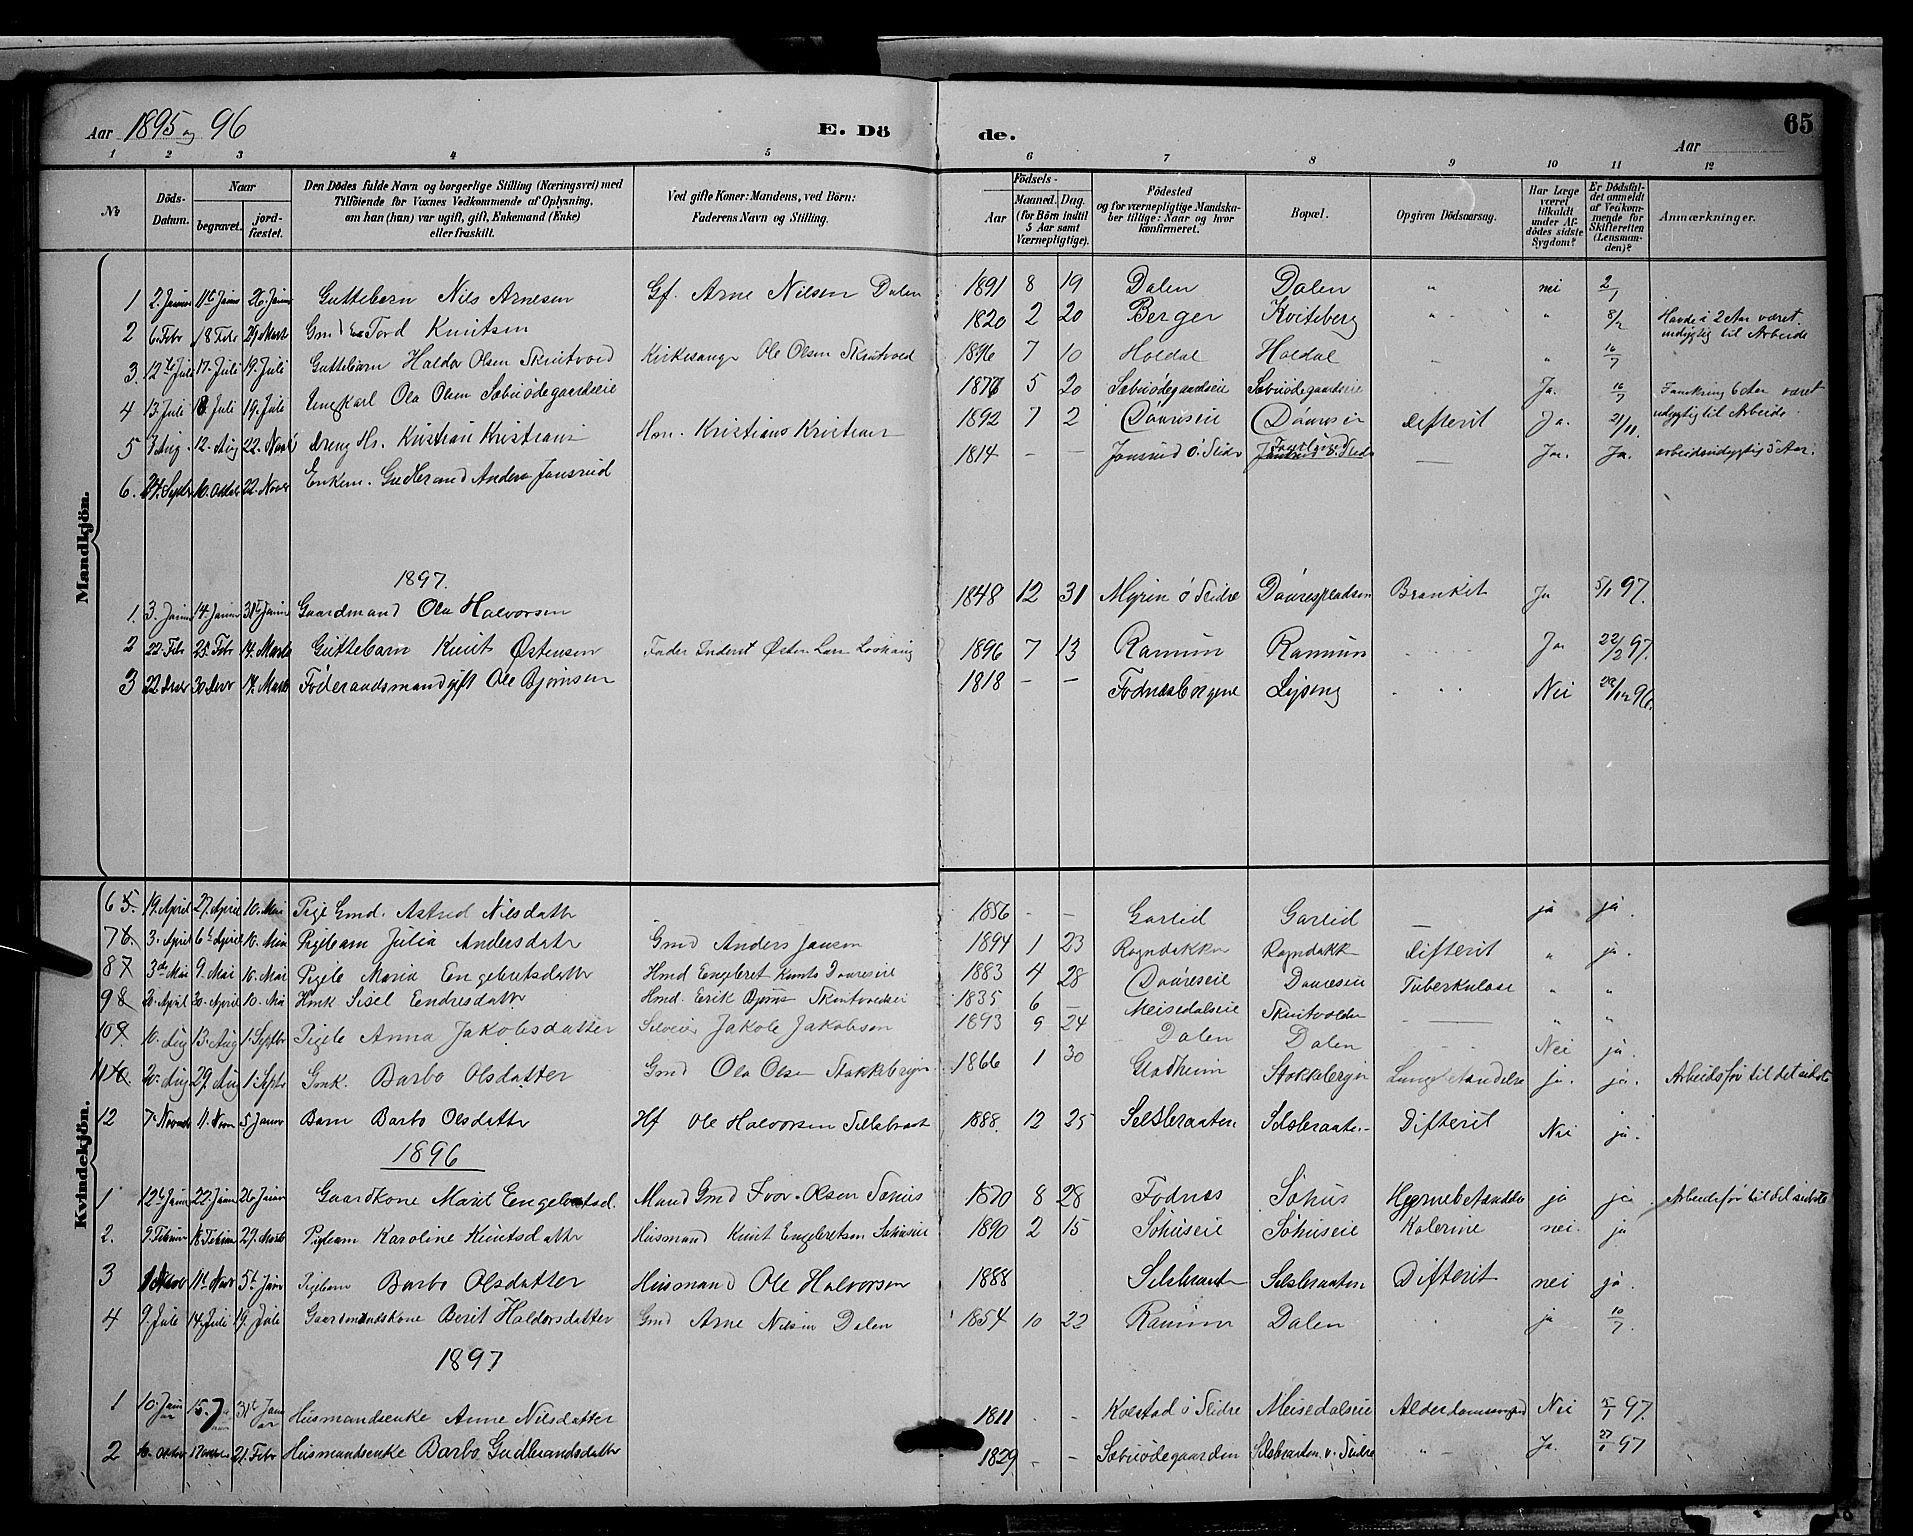 Aar 1895 og 96 E. Dö de. Aar 65
1 2 3 4 5 6 7 8 9 10 11 12
No Döds-Datum. Naar begravet. jordfæstet. Den Dödes fulde Navn og borgerlige Stilling (Næringsvei) med Tilföiende for Voxnes Vedkommende af Oplysning, om han (hun) var ugift, gift, Enkemand (Enke) eller fraskilt. Ved gifte Koner: Mandens, ved Börn: Faderens Navn og Stilling. Födsels- Aar Maaned. Dag. (for Börn indtil 5 Aar samt Værnepligtige). Födested og for værnepligtige Mandskaber tillige: Naar og hvor konfirmeret. Bopæl. Opgiven Dödsaarsag. Har Læge været tilkaldt under Afdödes sidste Sygdom? Er Dödsfaldet anmeldt af Vedkommende for Skifteretten (Lensmanden)? Anmærkninger.
Mandkjön.
1 2. Januar 11te Janu 26 Janu Guttebarn Nils Arnesen Gf. Arne Nilsen Dalen 1891 8 19 Dalen Dalen " nei 2/1
2 6 Febr 18 Febr 29 Marts Gmd Tord Knutsen 1820 2 20 Berger Kviteberg " " 8/2 Havde i 2 Aar været udygtig til Arbeide
3. 12te Juli 17. Juli 19. Juli Guttebarn Haldor Olsen Skrutvold Kirkesanger Ole Olsen Skrutvold 1896 7 10 Holdal Holdal " 16/7
4 13. Juli 18 Juli 19. Juli Ungkarl Ola Olsen Sæbuödegaardseie 1877 5 20 Sæbuödegaardseie Sæbuödegaardseie Ja. 16/7 Famkring 6 Aar været udygtig til Arbeide.
5 7 Aug. 12. Aug 22. Novb Dreng Hs. Kristian Kristians Hsm. Kristians Kristiansen 1892 7 2 Döuresie Döuresie Difterit Ja. 21/11.
6. 24. Septr 10. Octbr 22. Novbr Enkem. Gudbrand Anders Jonsrud 1814 - - Jonsrud Ö. Slidre Ja. Ja. arbeidsudygtig 5 Aar.
1897.
1. 3. Janu 14. Janu 31te Janu Gaardmand Ola Halvorsen 1848 12 31 Myrin Ö Slidre Döurespladsen Bronkit Ja 5/1 97.
2 22. Febr 25. Febr 14. Marts Guttebarn Knut Østensen Fader Inderst Østen Lars 1896 7 13 Ranum Ranum Ja 22/2 97.
3 22. Decbr 30 Decbr 14. Marts Föderaadsmand gift Ole Bjørnsen 1818 - - Fodnæsbergene Nei 28/12 96.
Kvindekjön.
6 5. 19. April 27. April 10. Mai Pige Gmd. Astrid Nilsdatter 1856 - - Garlid Garlid ja ja.
7 6. 3. April 6te April 10. Mai Pigebarn Julia Andersdatr Gmd Anders Jansen 1894 1 23 Rogndokken Rogndokk Difterit " ja.
8 7 3de Mai 9. Mai 10. Mai Pigeb Maria Engebretsdatter Hmd Engebret Knuts Döuresie 1883 4 28 Döureseie Döureseie Tuberkulose " "
9 8 20. April 30. April 10. Mai Hmk Sisel Endresdatter Hmd. Erik Bjørn Skrutvoldei 1835 6 - Meisedalseie Skrutvolden " "
10 9. 10. Aug 13. Aug 1. Septbr Pigeb Anna Jakobsdatter Selveier Jakob Jakobsen 1893 9 24 Dalen Dalen Nei ja.
11 10. 20. Aug 27. Aug 1. Septbr Gmk. Barbo Olsdatter Gmd Ola Olsen Stokkebergin 1866 1 30 Gladheim Stokkebergin Lungebetændelse ja. ja. Arbeidsför til det sidste
12 7. Novmbr 11. Novm 5 Januar Barn Barbo Olsdatter Hf Ole Halvorsen Selsbraat 1888. 12 25 Selsbraaten Selsbraaten Difterit Nei ja.
1896
1 12te Janu 22. Janu 26 Januar Gaardkone Marit Engebretsd. Mand Gmd Ivar Olsen Søhus 1870 8 28 Fodnæs Søhus Hjernebetændelse ja ja Arbeidsför til det sidste
2. 9. Februar 18. Februar 29. Marts Pigebarn Karoline Knutsdatter Husmand Knut Engebretsen Søhuseie 1890 2 15 Søhuseie Søhuseie Kolerine nei. ja
3 11te Novbr 5te Janu Pigebarn Barbo Olsdatter Husmand Ole Halvorsen 1888 Selsbraaten Selsbraaten Difterit nei ja.
4 9. Juli 14. Juli 19. Juli Gaardmandskone Berit Haldorsdatter Gmd Arne Nilsen Dalen 1854 10 22 Ranum Dalen ja 10/7.
1897
1 10. Januar 15. Januar 31te Januar Husmandsenke Anne Nilsdatter 1811 - - Kolstad Ö Slidre Meisedalseie Alderdomssvaghed Nei 5/1 97.
2 10. Octbr 17 octbr 21. Febr Husmandsenke Barbo Gudbrandsdatter 1829 - - Sæbuödegaarden Selsbraaten v. Slidre " Ja. 27/1 97